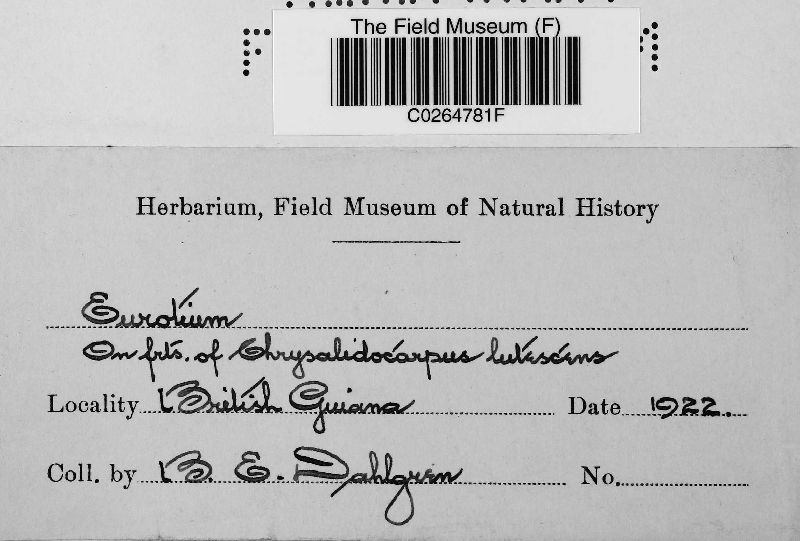 The Field Museum (F)
C0264781F
Herbarium, Field Museum of Natural History
Eurotium
On frts. of Chrysalidocarpus lutescens
Locality British Guiana Date 1922.
Coll. by B. E. Dahlgren No.